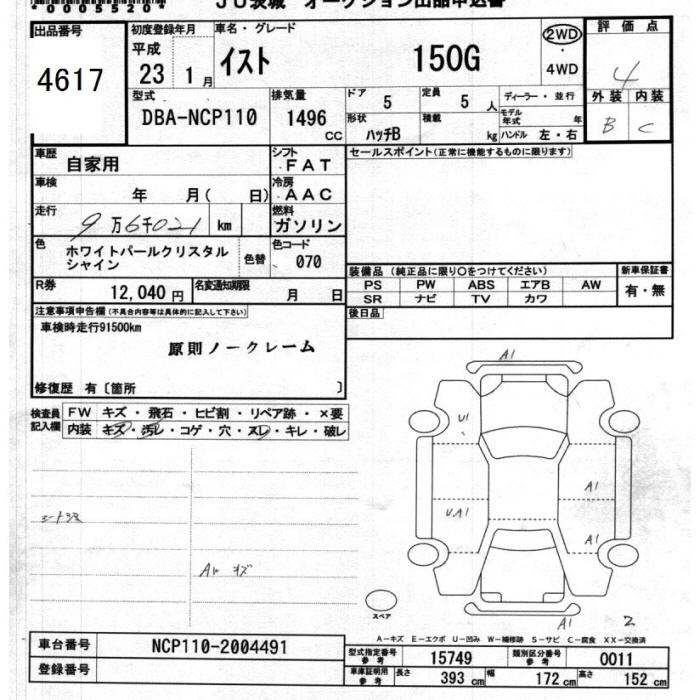 *00055520*
JU茨城 オークション出品申込書
出品番号
4617
初度登録年月
平成
23 1月
車名・グレード
イスト 150G
2WD
・
4WD
評価点
4
外装 内装
B C
型式
DBA-NCP110
排気量
1496
CC
ドア
5
定員
5 人
ディーラー・並行
形状
ハッチB
積載
kg
モデル年式
年
ハンドル 左・右
車歴
自家用
シフト
FAT
セールスポイント(正常に機能するものに限ります)
車検
年 月( 日)
冷房
AAC
走行
9万6千021 km
燃料
ガソリン
色
ホワイトパールクリスタル
シャイン
色替
色コード
070
装備品(純正品に限り○をつけてください)
PS PW ABS エアB AW
SR ナビ TV カワ
新車保証書
有・無
R券
12,040円
名変通知期限
月 日
後日品
注意事項申告欄(不具合内容等は具体的に記入して下さい)
車検時走行91500km
原則ノークレーム
修復歴 有〔箇所 〕
検査員
記入欄
FW キズ・飛石・ヒビ割・リペア跡・×要
内装 キズ・汚レ・コゲ・穴・スレ・キレ・破レ
A1
U1
A1
U.A1
A1
A1
2
スペア
A-キズ E-エクボ U-凹み W-補修跡 S-サビ C-腐食 XX-交換済
車台番号
NCP110-2004491
登録番号
型式指定番号
参考
15749
類別区分番号
参考
0011
車庫証明用
参考
長さ 393 cm
幅 172 cm
高さ 152 cm